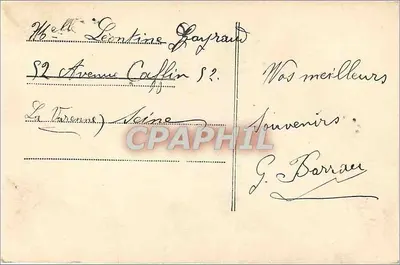 Melle Léontine Gayraud
52 Avenue Caffin 52.
La Varenne) Seine
Vos meilleurs
souvenirs
G. Barrau
CPAPHIL